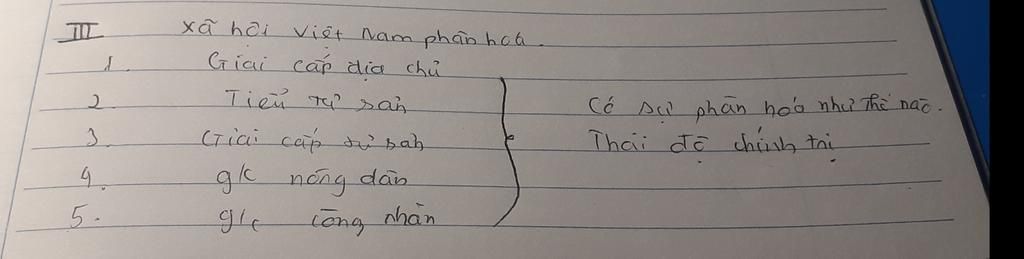 III Xã hội Việt Nam phân hoá.
1. Giai cấp địa chủ
2. Tiểu tư sản
3. Giai cấp tư sản
4. g/c nông dân
5. g/c công nhân
Có sự phân hoá như thế nào.
Thái độ chính trị